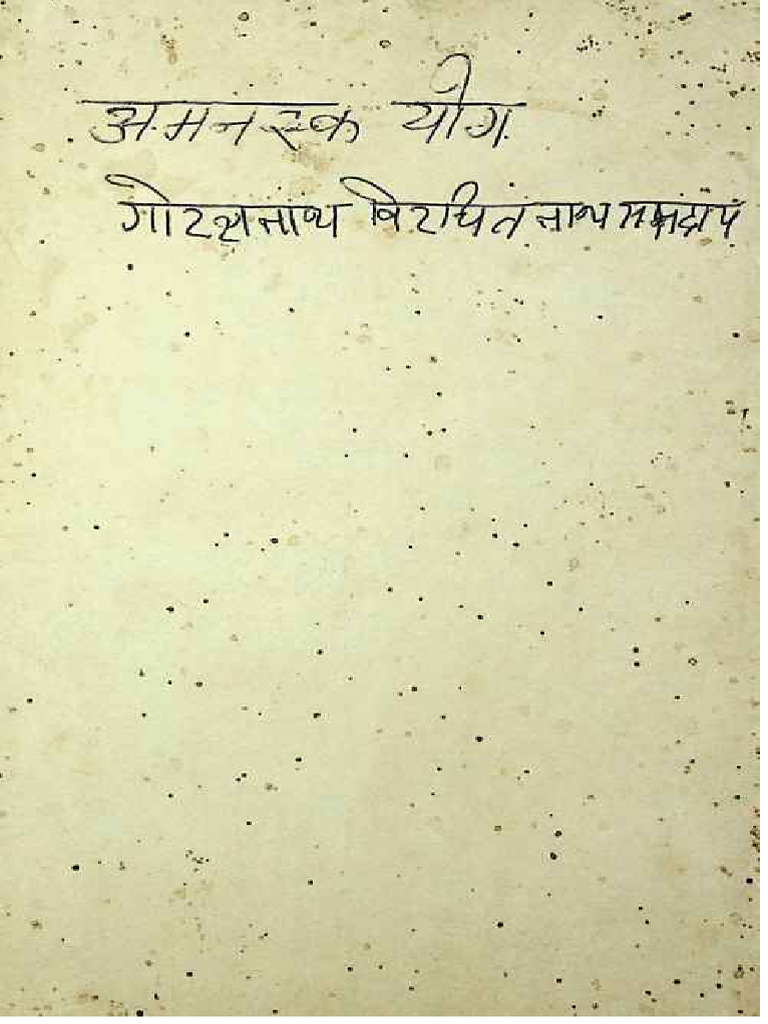 अमनस्क योग
गोरक्षनाथ विरचित नाथ सम्प्रदाय